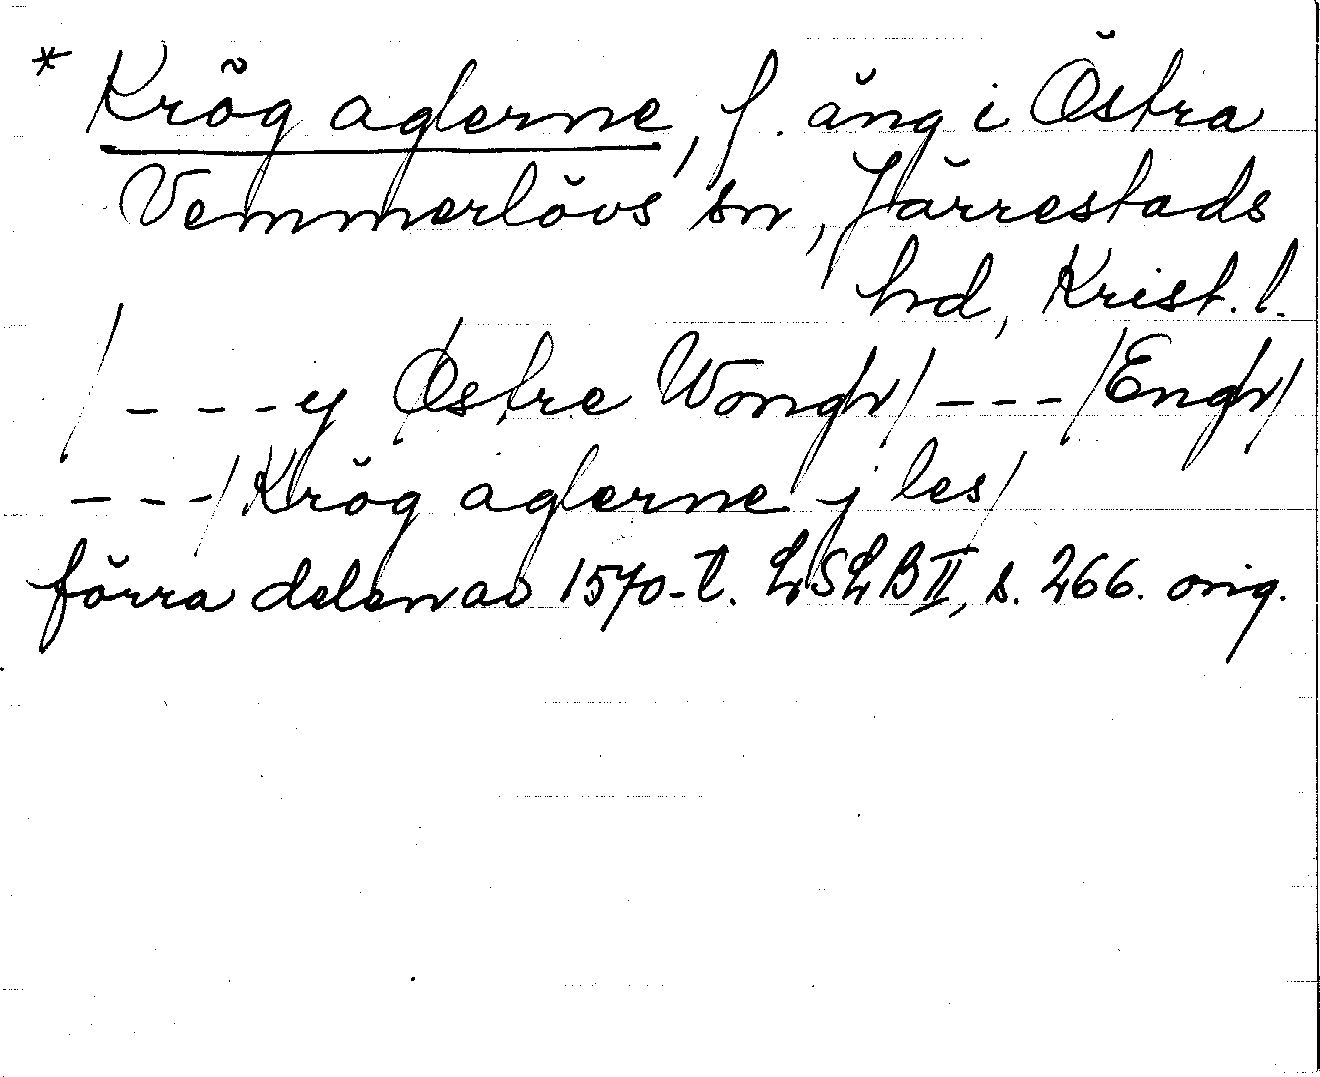 * Krög aglerne, f. äng i Östra
Vemmerlövs sn, Järrestads
hd, Krist. l.
/ - - - y Østre Wongh/ - - - /Engh/
- - - / Krög aglerne j les/
förra delen av 1570-t. LSLB II, s. 266. orig.